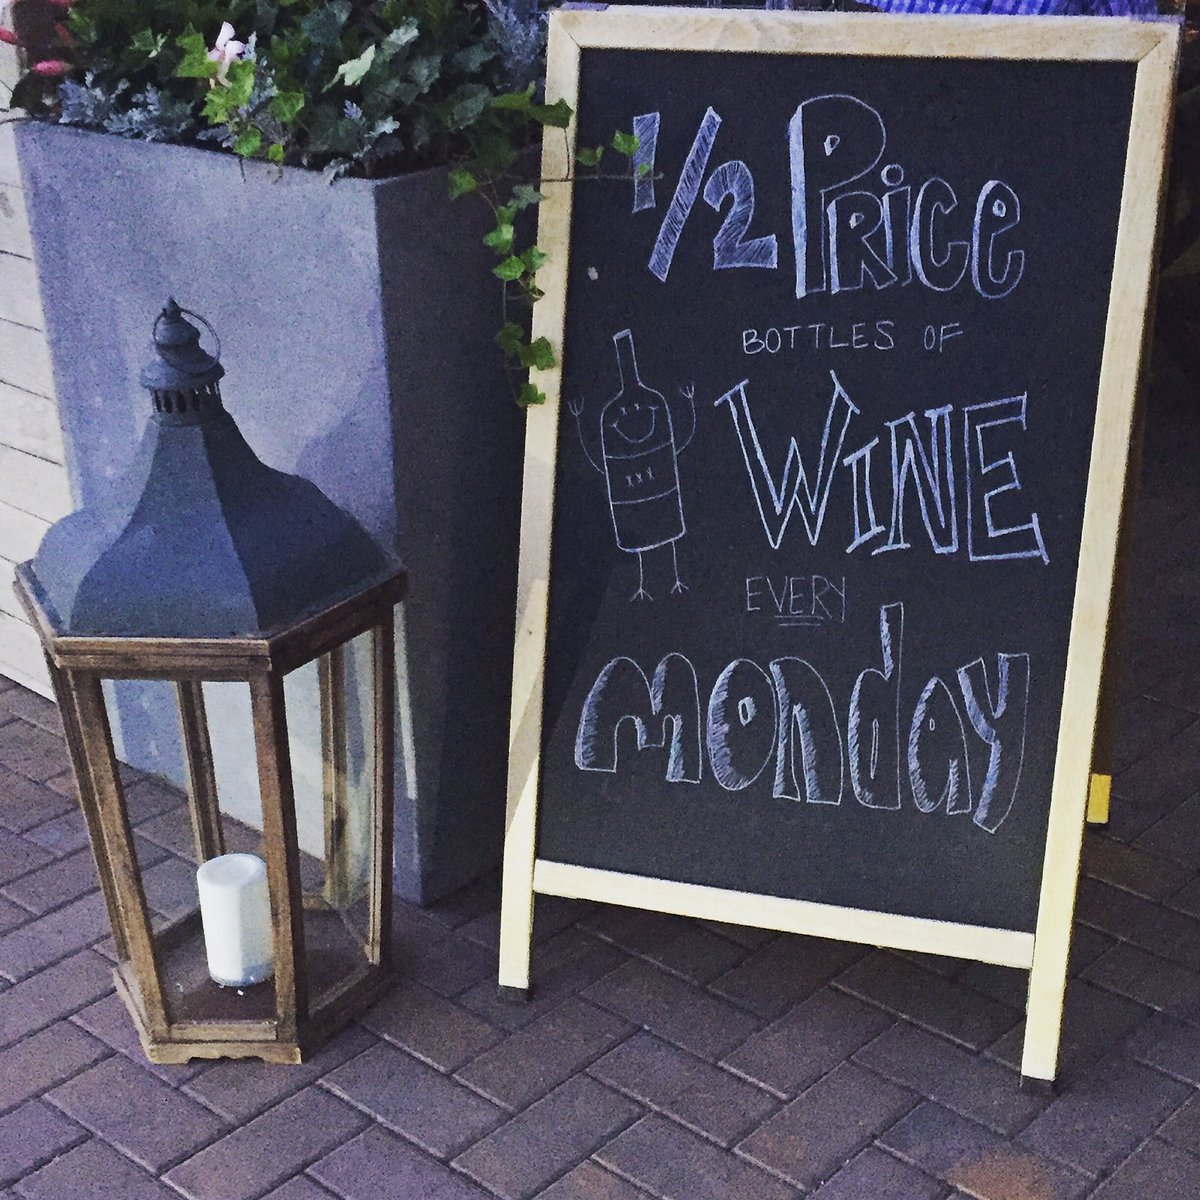 1/2 Price
BOTTLES OF
WINE
XXX
EVERY
monday